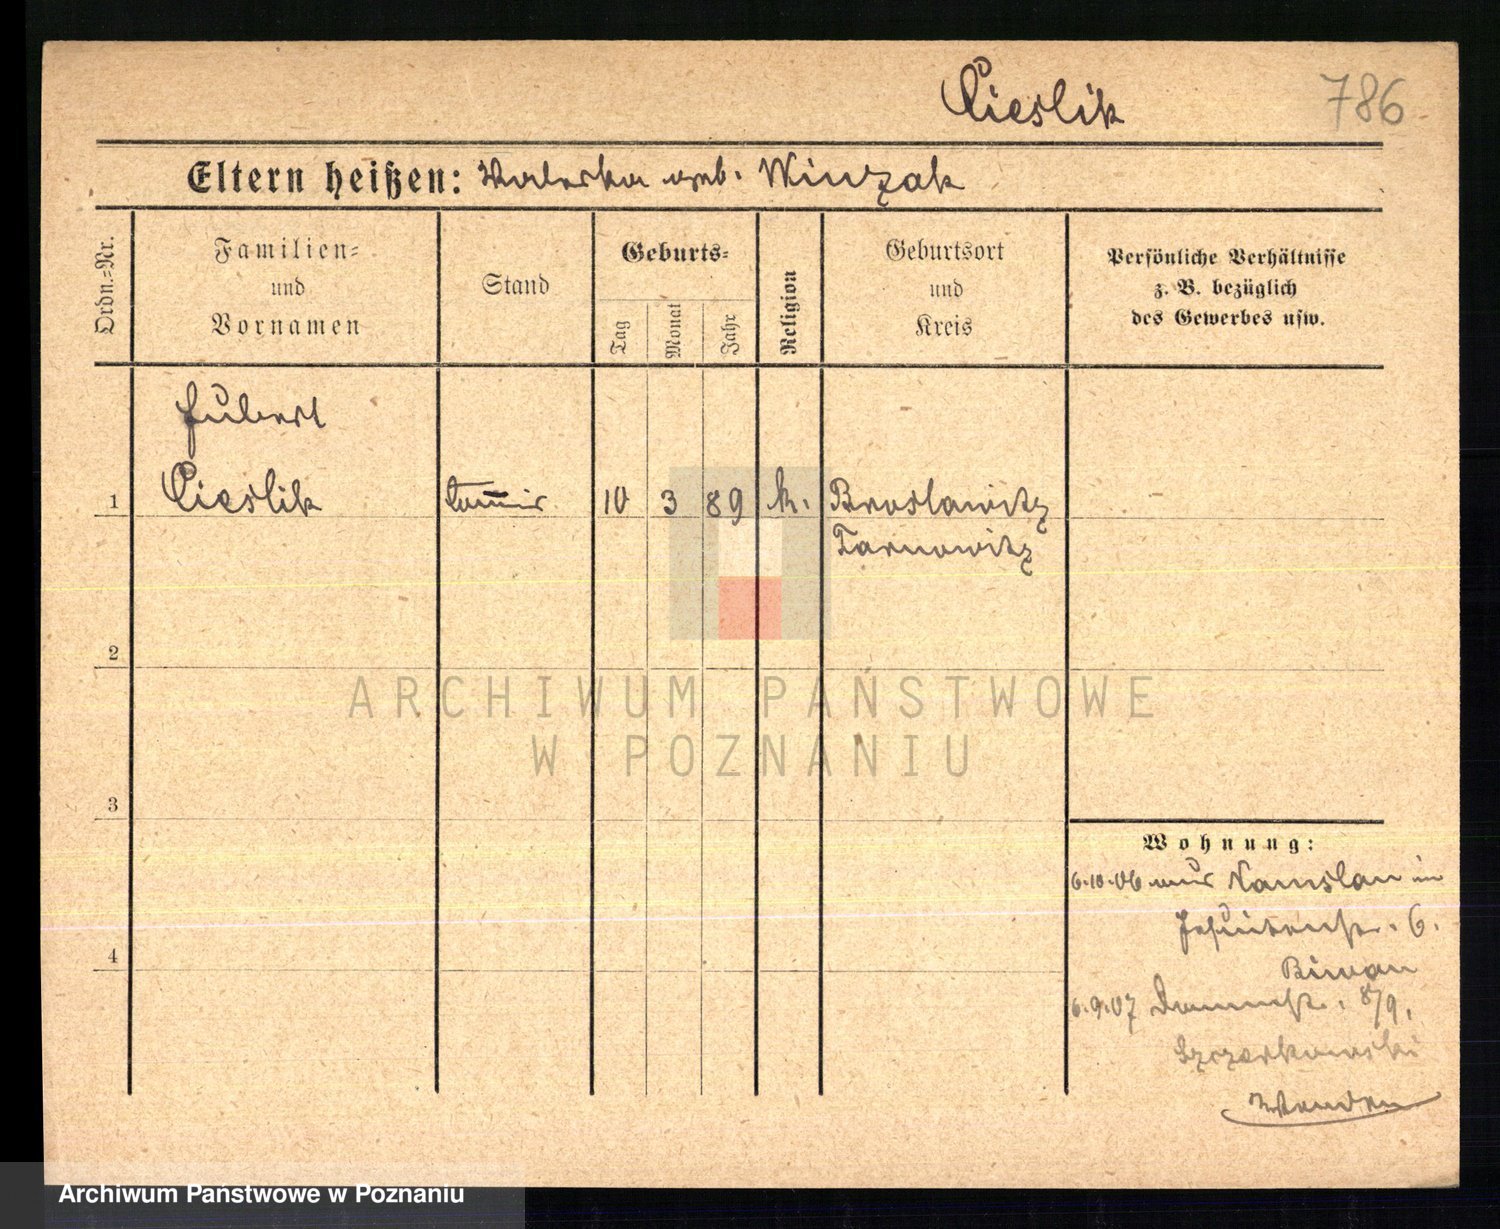 Cieslik 786
Eltern heißen: Waleska geb. Winczak
Ordn.=Nr.
Familien=
und
Vornamen
Stand
Geburts=
Tag
Monat
Jahr
Religion
Geburtsort
und
Kreis
Persönliche Verhältnisse
z. B. bezüglich
des Gewerbes usw.
Hubert
1 Cieslik 10 3 89 k. Broslawitz
Tarnowitz
2
3
4
Wohnung:
6.10.06 aus Namslau in
Jesuitenstr. 6.
6.9.07 Dammstr. 8/9.
Szczerkowski
ARCHIWUM PAŃSTWOWE
W POZNANIU
Archiwum Państwowe w Poznaniu